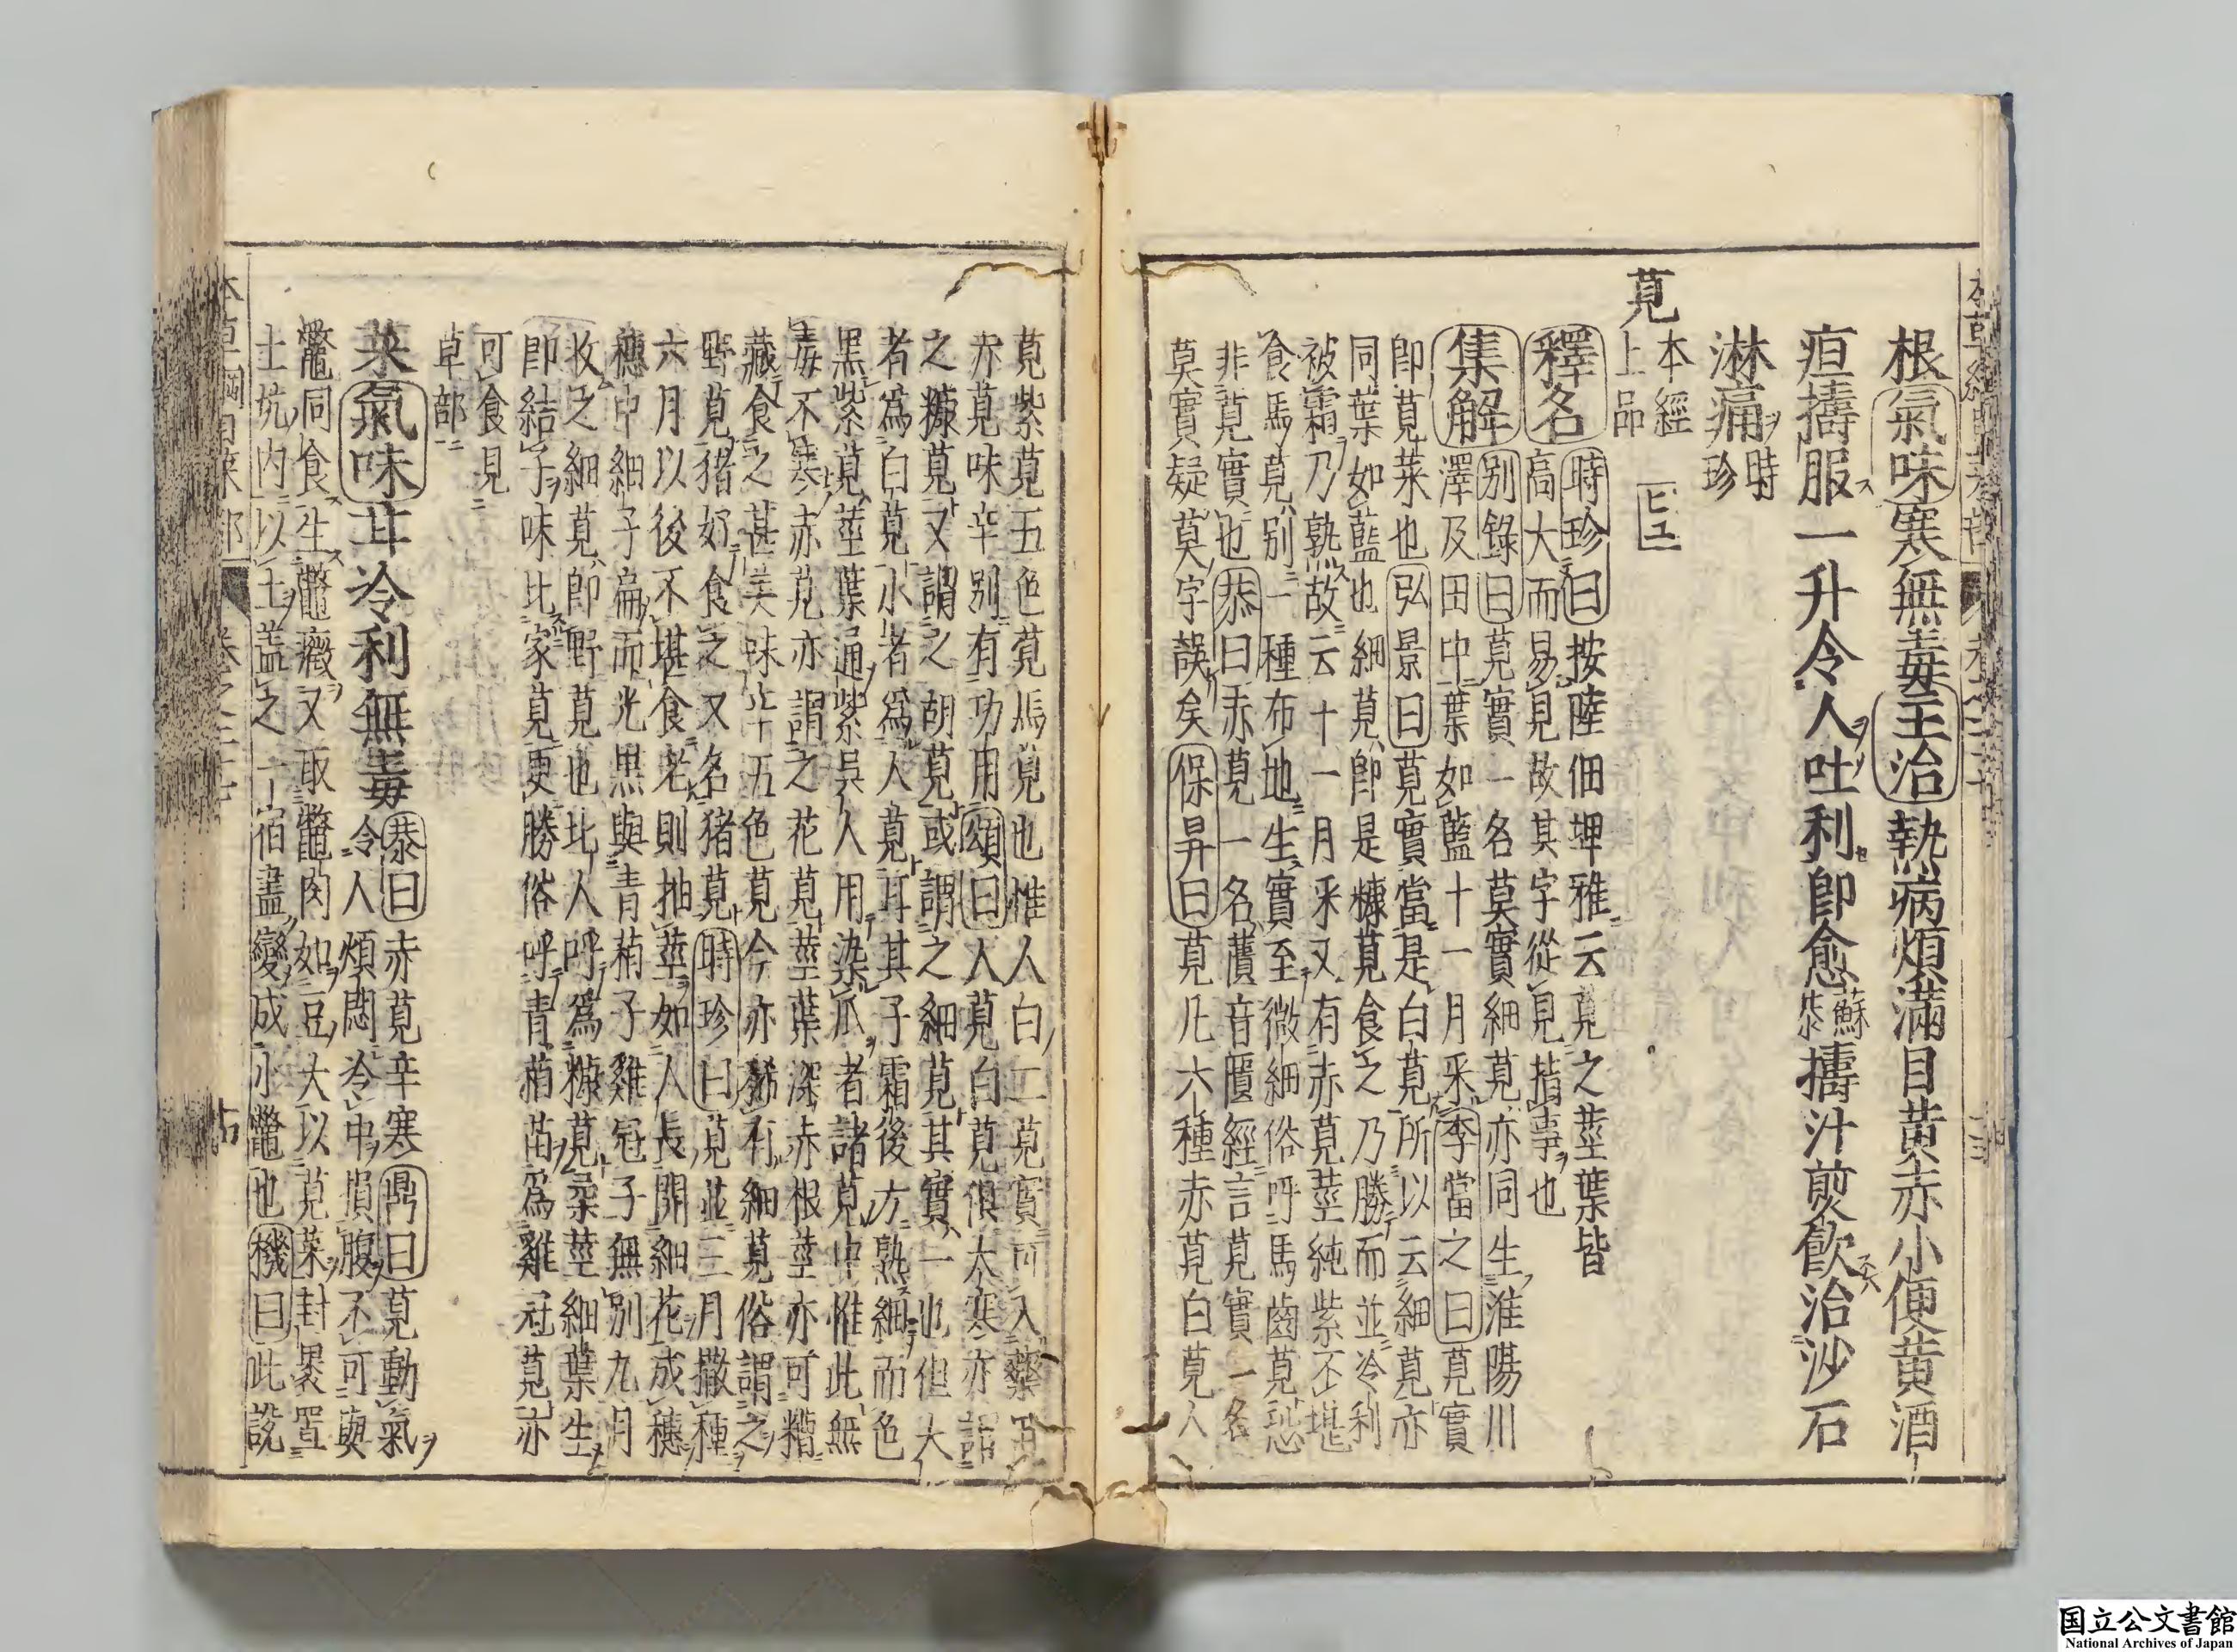 根氣味寒無毒主治熱病煩滿目黄赤小便黄酒
疸擣服一升令人吐利卽愈蘇恭擣汁煎飲治沙石
淋痛時珍
莧本經上品
ヒユ
釋名時珍曰按陸佃埤雅云莧之莖葉皆
高大而易見故其字從見指事也
集解別錄曰莧實一名莫實細莧亦同生淮陽川
澤及田中葉如藍十一月采李當之曰莧實
卽莧菜也弘景曰莧實當是白莧所以云細莧亦
同葉如藍也細莧卽是糠莧食之乃勝而並冷利
被霜乃熟故云十一月采又有赤莧莖純紫不堪
食馬莧別一種布地生實至微細俗呼馬齒莧恐
非莧實也恭曰赤莧一名蕢音匱經言莧實一名
莫實疑莫字誤矣保昇曰莧凡六種赤莧白莧人
莧紫莧五色莧馬莧也惟人白二莧實可入藥用
赤莧味辛別有功用頌曰人莧白莧俱大寒亦謂
之糠莧又謂之胡莧或謂之細莧其實一也但大
者爲白莧小者爲人莧耳其子霜後方熟細而色
黑紫莧莖葉通紫吳人用染爪者諸莧中惟此無
毒不寒赤莧亦謂之花莧莖葉深赤根莖亦可糟
藏食之甚美味辛五色莧今亦稀有細莧俗謂之
野莧猪好食之又名猪莧時珍曰莧並三月撒種
六月以後不堪食老則抽莖如人長開細花成穗
穗中細子扁而光黑與青葙子雞冠子無別九月
收之細莧卽野莧也北人呼爲糠莧柔莖細葉生
卽結子味比家莧更勝俗呼青葙苗爲雞冠莧亦
可食見
草部
菜氣味甘冷利無毒恭曰赤莧辛寒鼎曰莧動氣
令人煩悶冷中損腹不可與
鼈同食生鼈癥又取鼈肉如豆大以莧菜封裹置
土坑內以土盖之一宿盡變成小鼈也機曰此說
国立公文書館
National Archives of Japan